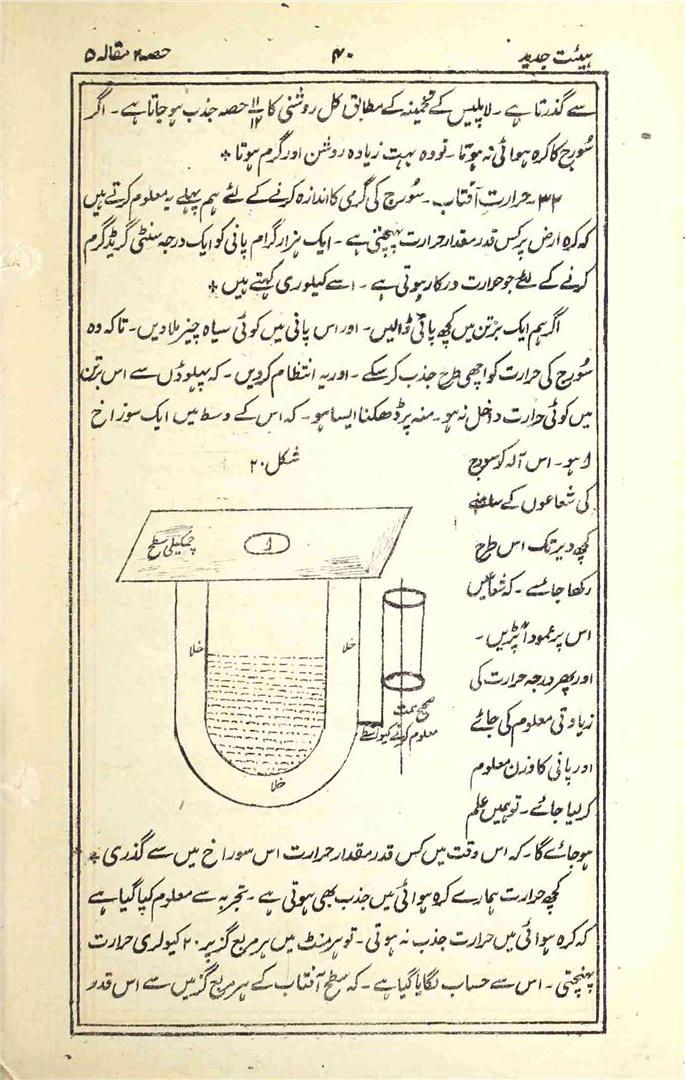 ہیئت جدید
۴۰
حصہ ۲ مقالہ ۵
سے گذرتا ہے۔ لاپلیس کے تخمینہ کے مطابق کل روشنی کا ۱۱/۱۲ حصہ جذب ہو جاتا ہے۔ اگر
سُورج کا کرہ ہوائی نہ ہوتا۔ تو وہ بہت زیادہ روشن اور گرم ہوتا *
۳۲۔ حرارتِ آفتاب۔ سُورج کی گرمی کا اندازہ کرنے کے لئے ہم پہلے یہ معلوم کرتے ہیں
کہ کرہ ارض پر کس قدر مقدار حرارت پہنچتی ہے۔ ایک ہزار گرام پانی کو ایک درجہ سنٹی گریڈ گرم
کرنے کے لئے جو حرارت درکار ہوتی ہے۔ اسے کیلوری کہتے ہیں *
اگر ہم ایک برتن میں کچھ پانی ڈالیں۔ اور اس پانی میں کوئی سیاہ چیز ملا دیں۔ تاکہ وہ
سُورج کی حرارت کو اچھی طرح جذب کر سکے۔ اور یہ انتظام کر دیں۔ کہ پہلوؤں سے اس برتن
میں کوئی حرارت داخل نہ ہو۔ منہ پر ڈھکنا ایسا ہو۔ کہ اس کے وسط میں ایک سوراخ
ا ہو۔ اس آلہ کو سورج
کی شعاعوں کے سامنے
کچھ دیر تک اس طرح
رکھا جائے۔ کہ شعاعیں
اس پر عموداً پڑیں۔
اور پھر درجہ حرارت کی
زیادتی معلوم کی جائے
اور پانی کا وزن معلوم
کر لیا جائے۔ تو ہمیں علم
شکل ۲۰
چمکیلی سطح
ا
خلا
خلا
خلا
صحیح سمت
معلوم کرنے کیواسطے
ہو جائے گا۔ کہ اس وقت میں کس قدر مقدار حرارت اس سوراخ میں سے گذری *
کچھ حرارت ہمارے کرہ ہوائی میں جذب بھی ہوتی ہے۔ تجربہ سے معلوم کیا گیا ہے
کہ کرہ ہوائی میں حرارت جذب نہ ہوتی۔ تو ہر منٹ میں ہر مربع گز پر ۲۰ کیلوری حرارت
پہنچتی۔ اس سے حساب لگایا گیا ہے۔ کہ سطح آفتاب کے ہر مربع گز میں سے اس قدر